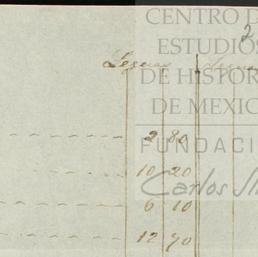 CENTRO D
ESTUDIOS
DE HISTOR
DE MEXIC
FUNDACI
Carlos Sl
2
Leguas
2 80
10 20
6 10
12 70